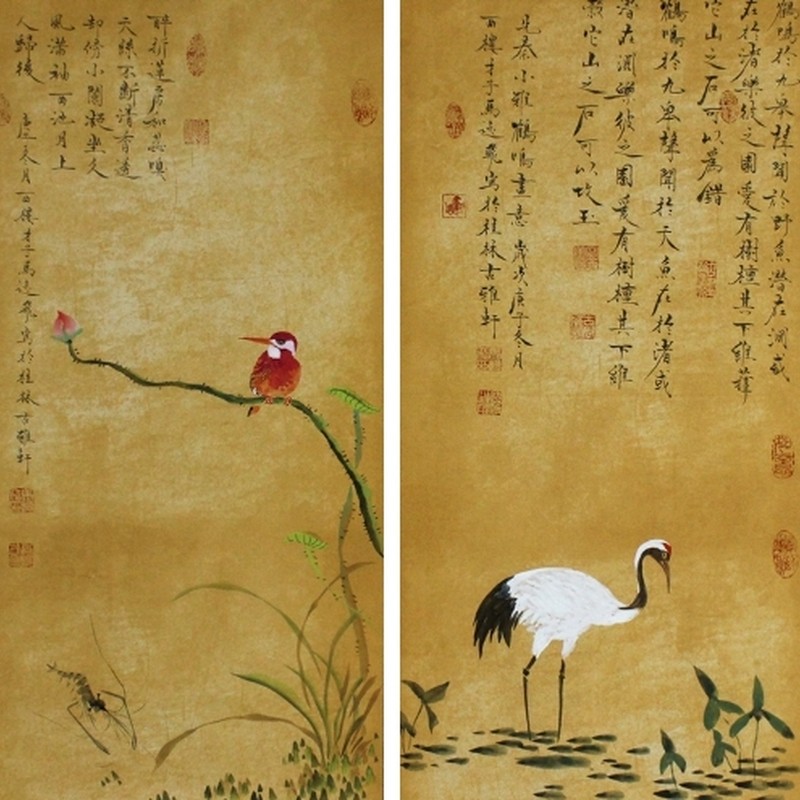 醉折蓮房和蕊嗅
天絲不斷清香透
却傍小闌凝坐久
風滿袖西池月上
人歸後 庚子冬月百樓才子馬逸飛寫於桂林古雅軒
鶴鳴於九皋聲聞於野魚潛在淵或
在於渚樂彼之園爰有樹檀其下維蘀
它山之石可以為錯
鶴鳴於九皋聲聞於天魚在於渚或
潛在淵樂彼之園爰有樹檀其下維
穀它山之石可以攻玉
先秦小雅鶴鳴畫意歲次庚子冬月
百樓才子馬逸飛寫於桂林古雅軒